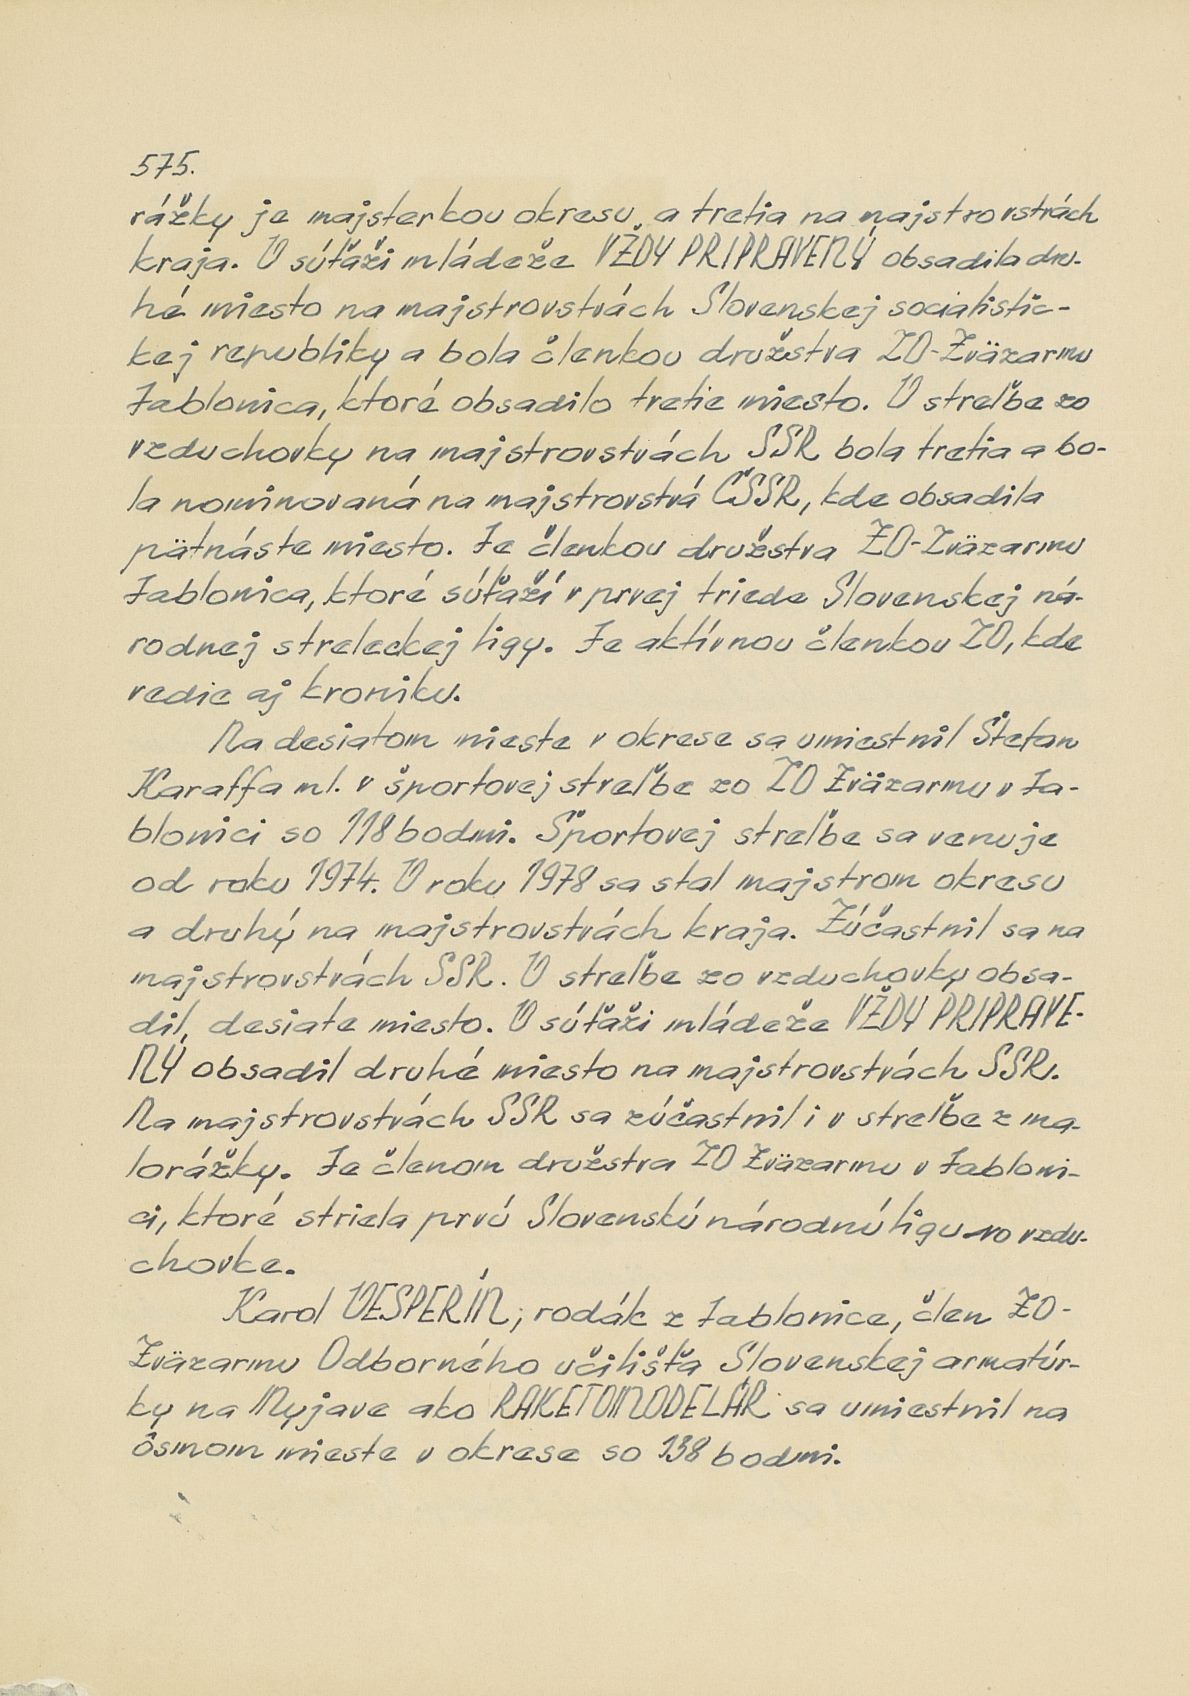 575.
rážky je majsterkou okresu a tretia na majstrovstvách
kraja. V súťaži mládeže VŽDY PRIPRAVENÝ obsadila dru-
hé miesto na majstrovstvách Slovenskej socialistic-
kej republiky a bola členkou družstva ZO-Zväzarmu
Jablonica, ktoré obsadilo tretie miesto. V streľbe zo
vzduchovky na majstrovstvách SSR bola tretia a bo-
la nominovaná na majstrovstvá ČSSR, kde obsadila
pätnáste miesto. Je členkou družstva ZO-Zväzarmu
Jablonica, ktoré súťaží v prvej triede Slovenskej ná-
rodnej streleckej ligy. Je aktívnou členkou ZO, kde
vedie aj kroniku.
Na desiatom mieste v okrese sa umiestnil Štefan
Karaffa ml. v športovej streľbe zo ZO Zväzarmu v Ja-
blonici so 118 bodmi. Športovej streľbe sa venuje
od roku 1974. V roku 1978 sa stal majstrom okresu
a druhý na majstrovstvách kraja. Zúčastnil sa na
majstrovstvách SSR. V streľbe zo vzduchovky obsa-
dil, desiate miesto. V súťaži mládeže VŽDY PRIPRAVE-
NÝ obsadil druhé miesto na majstrovstvách SSR.
Na majstrovstvách SSR sa zúčastnil i v streľbe z ma-
lorážky. Je členom družstva ZO Zväzarmu v Jabloni-
ci, ktoré striela prvú Slovenskú národnú ligu vo vzdu-
chovke.
Karol VESPERÍN, rodák z Jablonice, člen ZO-
Zväzarmu Odborného učilišťa Slovenskej armatúr-
ky na Myjave ako RAKETOMODELÁR sa umiestnil na
ôsmom mieste v okrese so 138 bodmi.